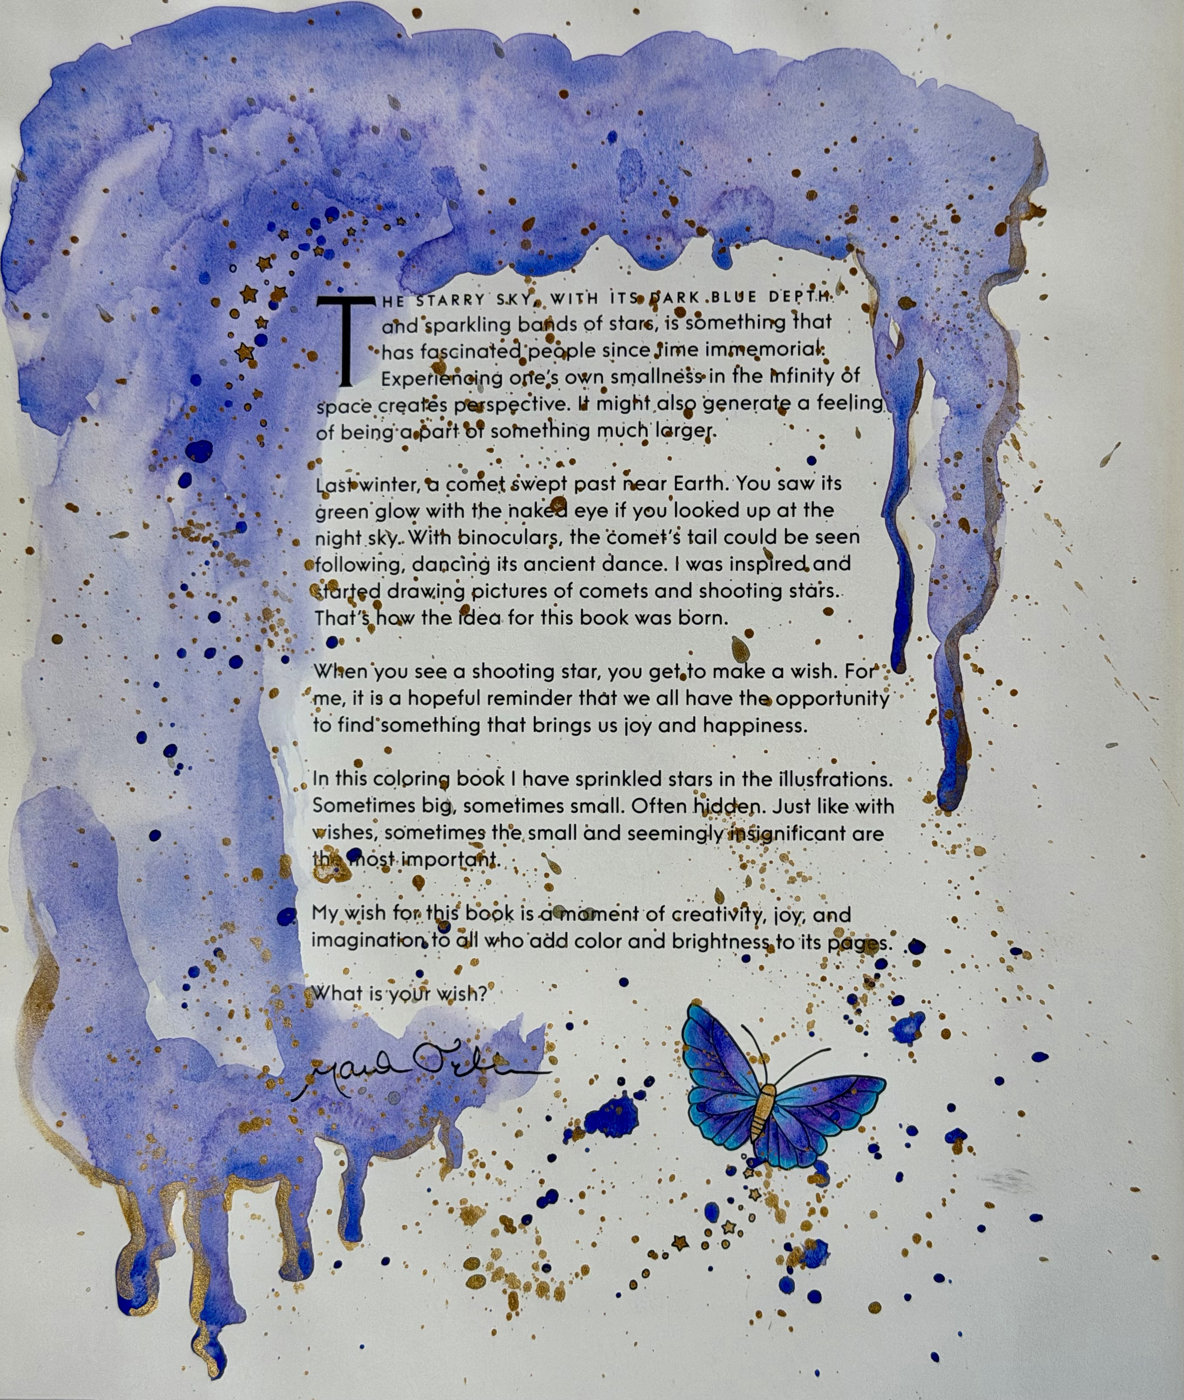 THE STARRY SKY, WITH ITS DARK BLUE DEPTH
and sparkling bands of stars, is something that
has fascinated people since time immemorial.
Experiencing one's own smallness in the infinity of
space creates perspective. It might also generate a feeling
of being a part of something much larger.
Last winter, a comet swept past near Earth. You saw its
green glow with the naked eye if you looked up at the
night sky. With binoculars, the comet's tail could be seen
following, dancing its ancient dance. I was inspired and
started drawing pictures of comets and shooting stars.
That's how the idea for this book was born.
When you see a shooting star, you get to make a wish. For
me, it is a hopeful reminder that we all have the opportunity
to find something that brings us joy and happiness.
In this coloring book I have sprinkled stars in the illustrations.
Sometimes big, sometimes small. Often hidden. Just like with
wishes, sometimes the small and seemingly insignificant are
the most important.
My wish for this book is a moment of creativity, joy, and
imagination to all who add color and brightness to its pages.
What is your wish?